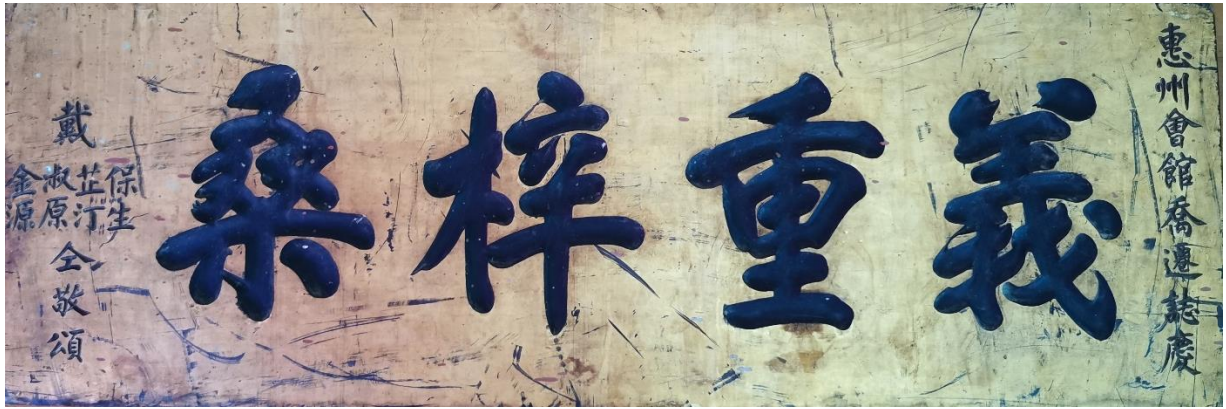 惠州會館喬遷誌慶
義重梓桑
戴
保生
芷汀
淑原
金源
仝敬頌